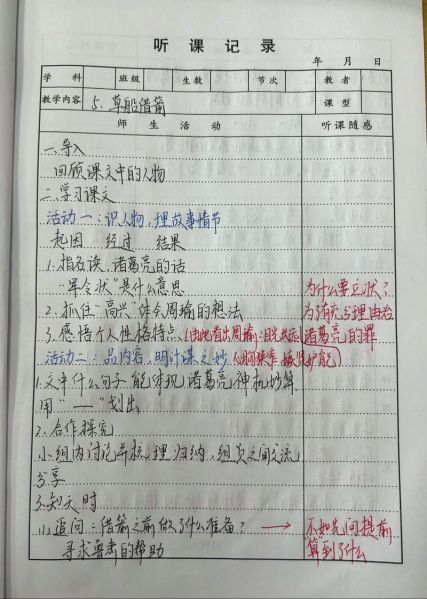 听课记录
年 月 日
学 科 班级 生数 节次 教者
教学内容 5. 草船借箭 课型
师 生 活 动 听课随感
一.导入
回顾课文中的人物
二.学习课文
活动一:识人物,理故事情节
起因 经过 结果
1.指名读,诸葛亮的话
"军令状"是什么意思 为什么要立状?
2.抓住"高兴"体会周瑜的想法 为了有充分理由治
3.感悟个人性格特点 (由此看出周瑜: 诸葛亮的罪
活动二:品内容,明计谋之妙 心胸狭窄,嫉贤妒能)
1.文中什么句子能体现诸葛亮神机妙算
用"——"划出
2.合作探究
小组内讨论并梳理归纳,组员之间交流
分享
3.知天时
(1)追问:借箭之前做了什么准备? → 不如先问提前
寻求鲁肃的帮助 算到了什么